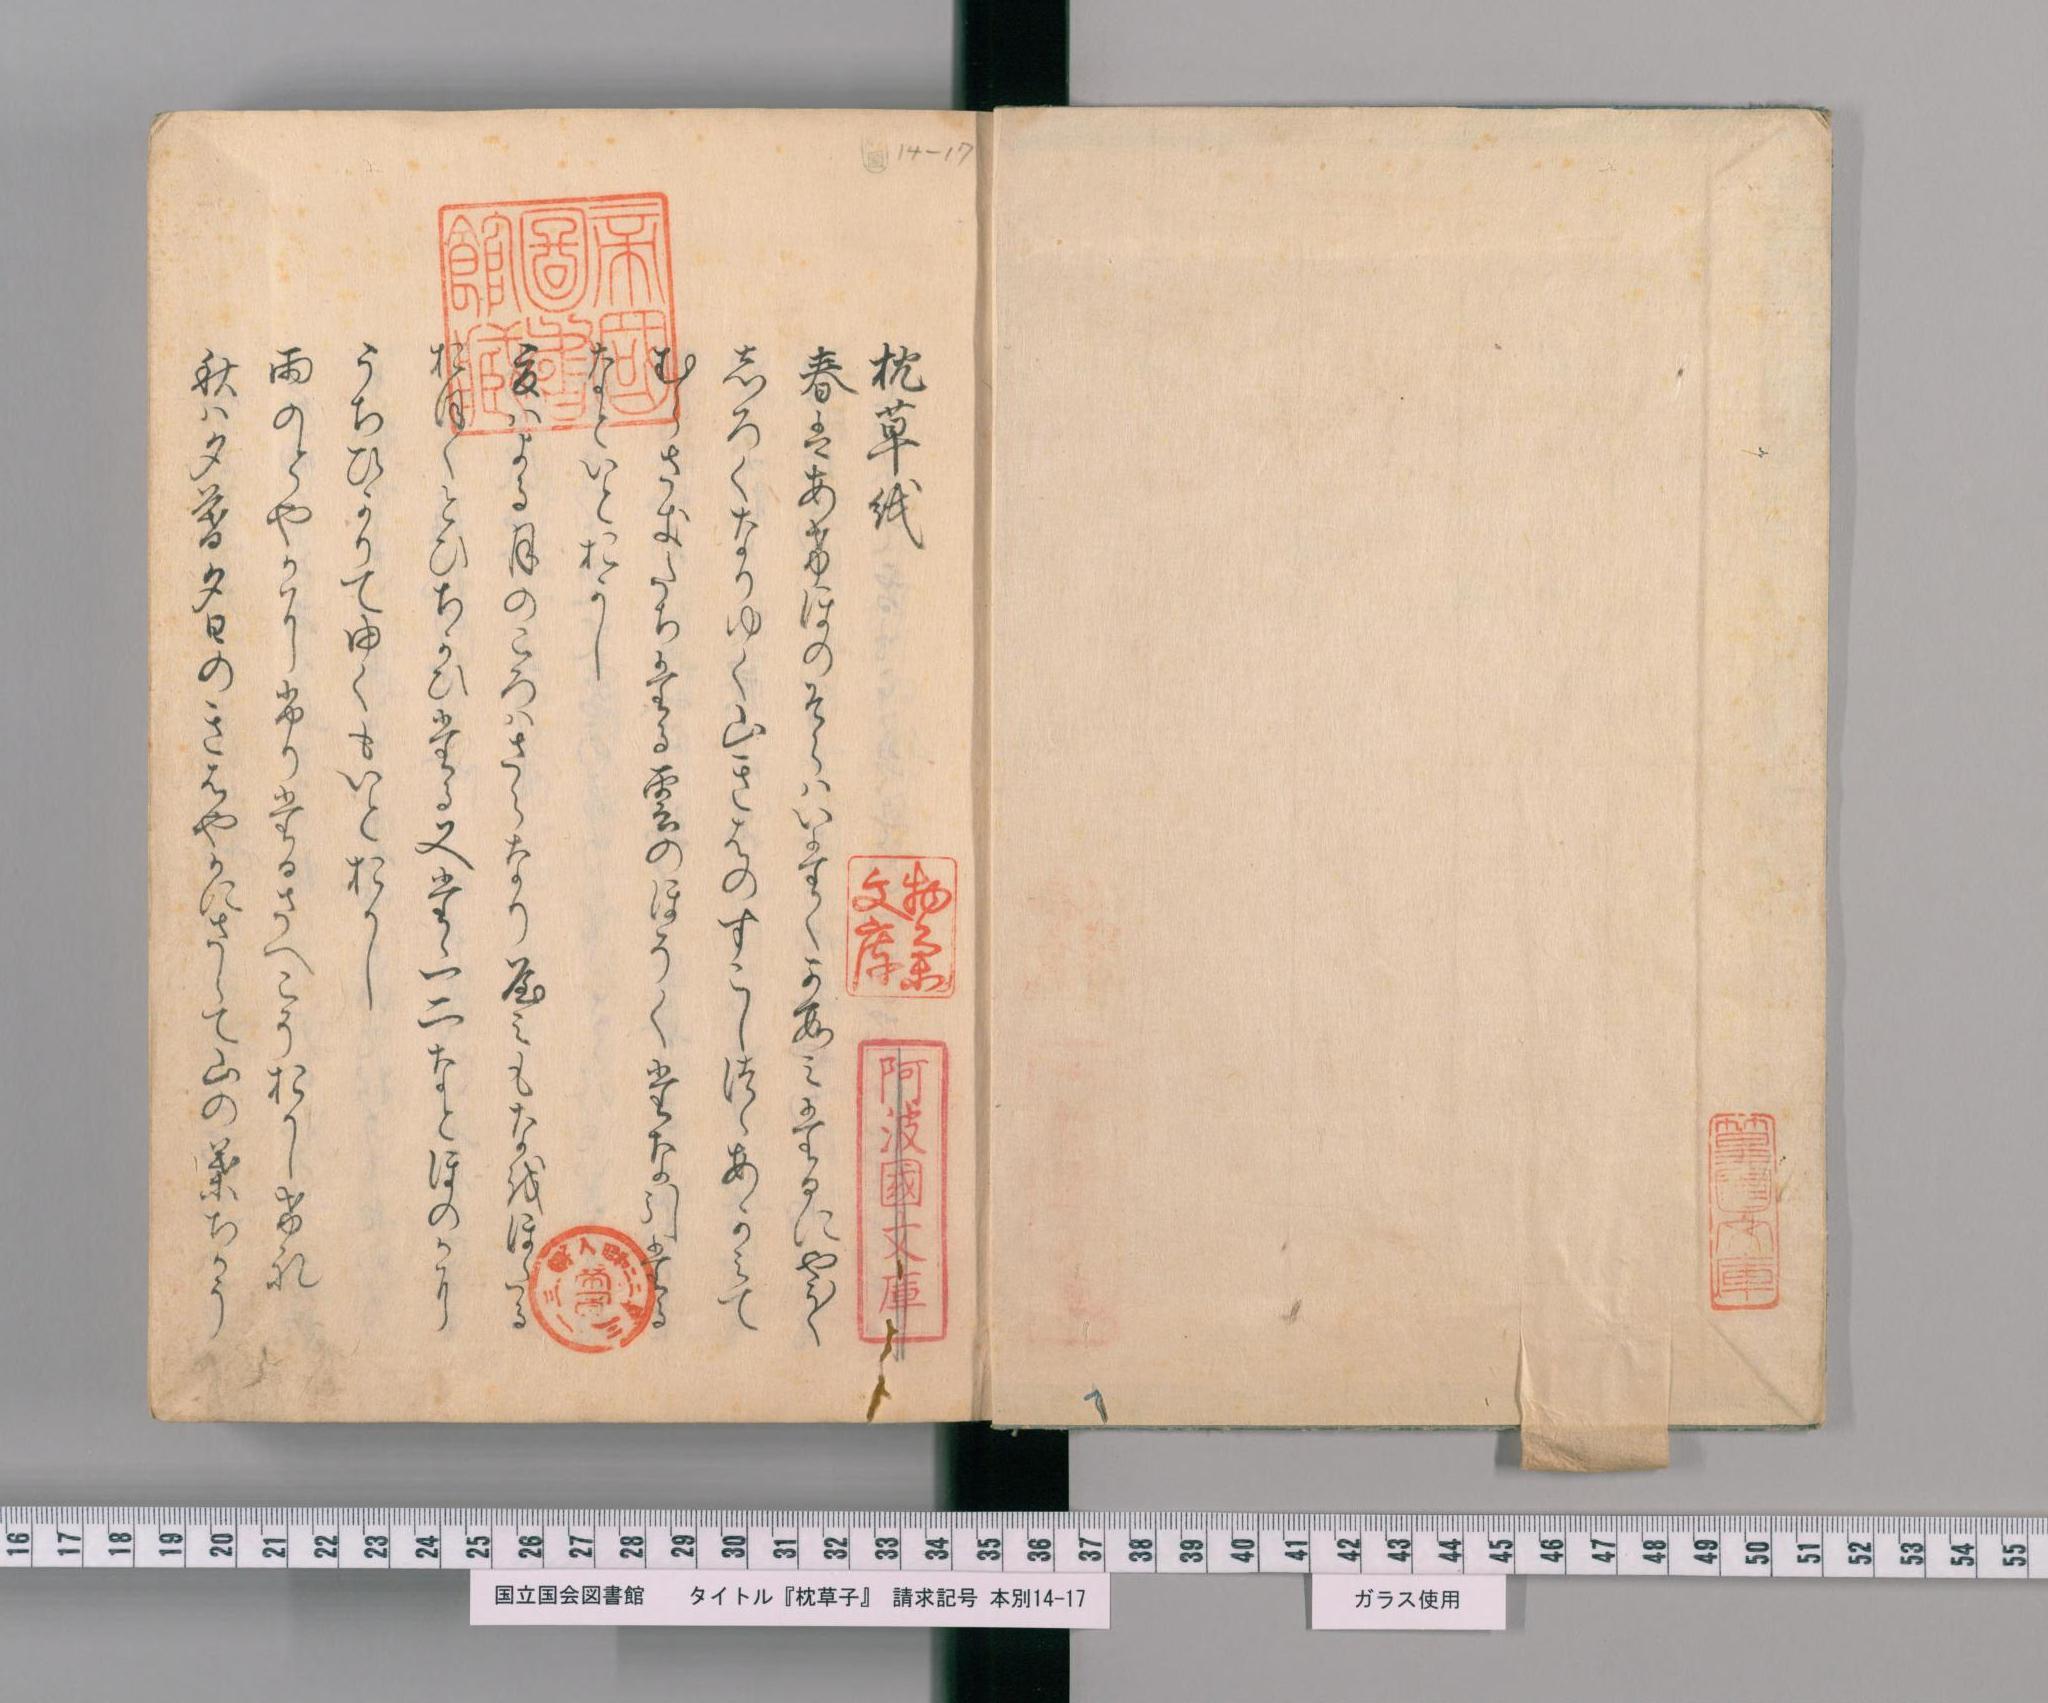 14-17
帝國圖書館藏
枕草紙
春はあけほのそらはいたくかすみたるにやうく
しろくなりゆく山きはのすこしつゝあかみて
むらさきたちたる雲のほそくたなひきたる
なといとおかし
夏ハよる月のころハさらなりやみもなをほたる
おほくとひちかひたる又たゝ一二なとほのかに
うちひかりてゆくもいとおかし
雨のとやかにふりたるさへこそおかしけれ
秋ハ夕暮夕日のきはやかにさして山の葉ちかう
物集文庫
阿波國文庫
16 17 18 19 20 21 22 23 24 25 26 27 28 29 30 31 32 33 34 35 36 37 38 39 40 41 42 43 44 45 46 47 48 49 50 51 52 53 54 55
国立国会図書館 タイトル『枕草子』 請求記号 本別14-17
ガラス使用